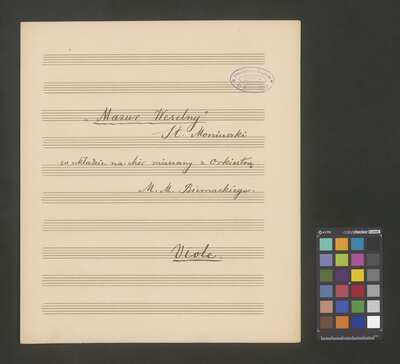 „Mazur Weselny"
St. Moniuszki
w układzie na chór mieszany z Orkiestrą
M. M. Biernackiego.
Viole.